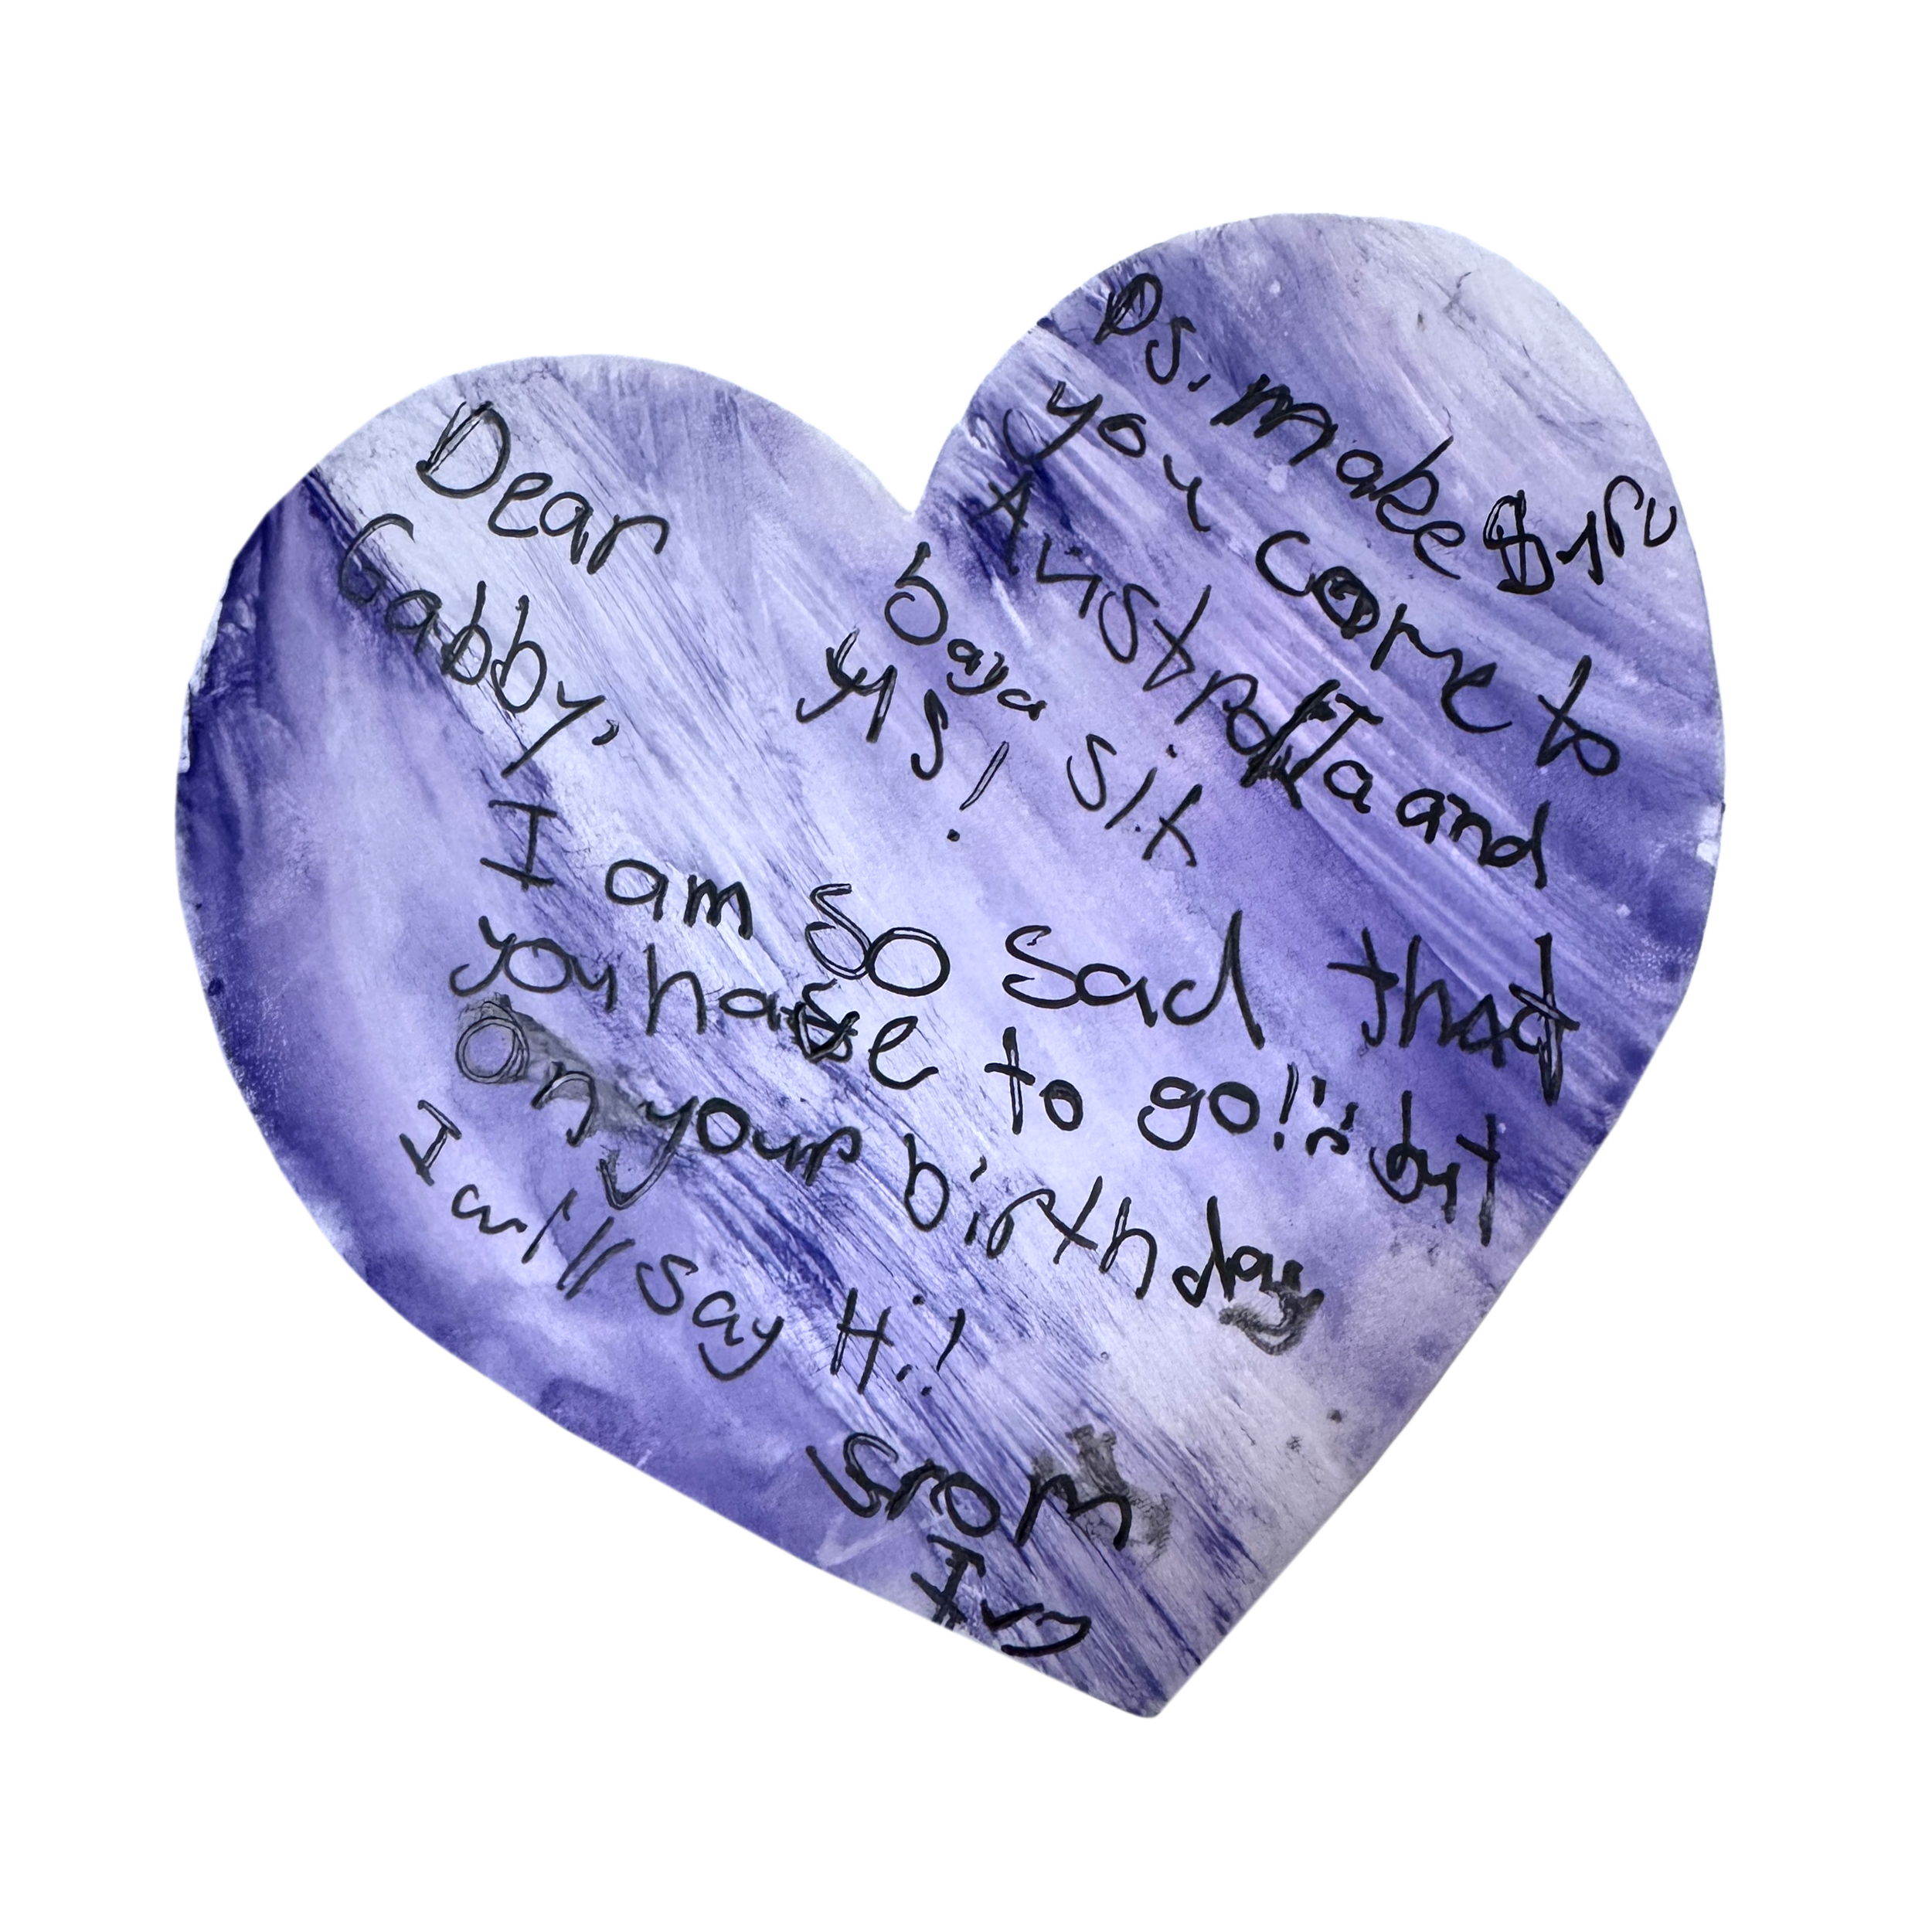 Dear
Gabby,
I am so sad that
you have to go! :( but
on your birthday
I will say Hi!
srom
Ivy
Ps, make Sru
you come to
Australia and
baya sit
us!